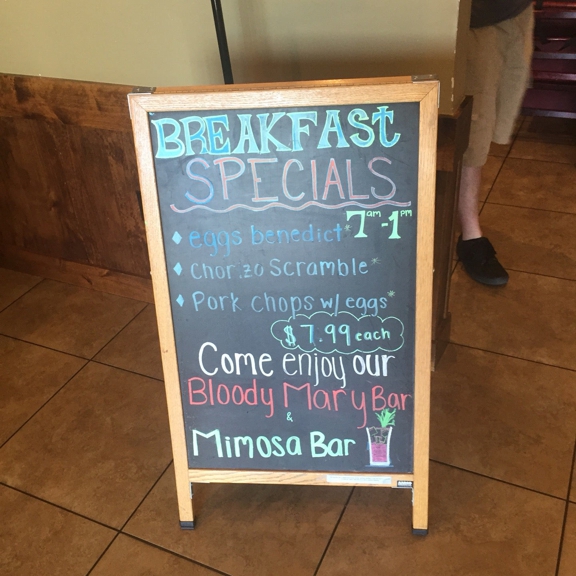 BREAKFAST
SPECIALS
7am-1pm
eggs benedict*
Chorizo Scramble*
Pork Chops w/ eggs*
$7.99 each
Come enjoy our
Bloody Mary Bar
&
Mimosa Bar